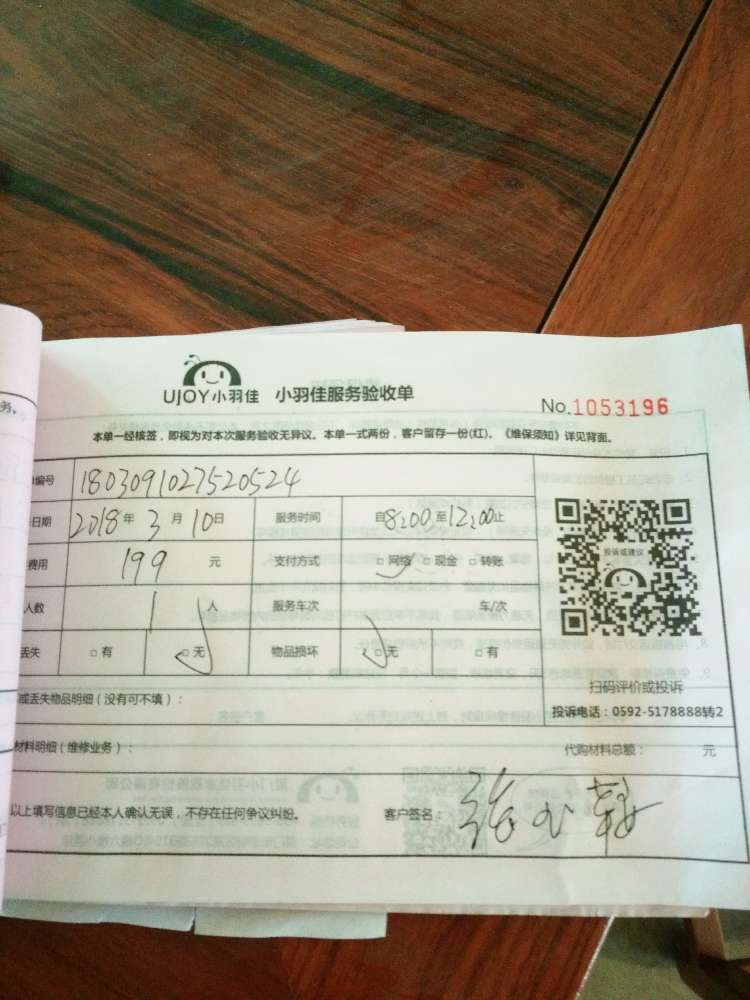 UJOY小羽佳 小羽佳服务验收单
No.1053196
务,
本单一经核签，即视为对本次服务验收无异议。本单一式两份，客户留存一份(红)。《维保须知》详见背面。
单编号 1803091027520524
日期 2018年3月10日 服务时间 自8:00至12:00止
费用 199元 支付方式 □网络 □现金 □转账
人数 1人 服务车次 车/次
丢失 □有 □无 物品损坏 □无 □有
投诉或建议
扫码评价或投诉
投诉电话：0592-5178888转2
或丢失物品明细（没有可不填）：
材料明细（维修业务）： 代购材料总额： 元
以上填写信息已经本人确认无误，不存在任何争议纠纷。 客户签名：